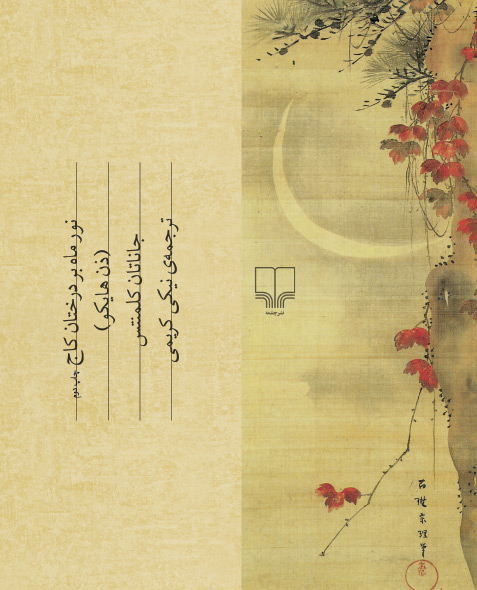 نور ماه بر درختان کاج
چاپ دوم
(ذن هایکو)
جاناتان کلمنتس
ترجمه‌ی نیکی کریمی
نشرچشمه